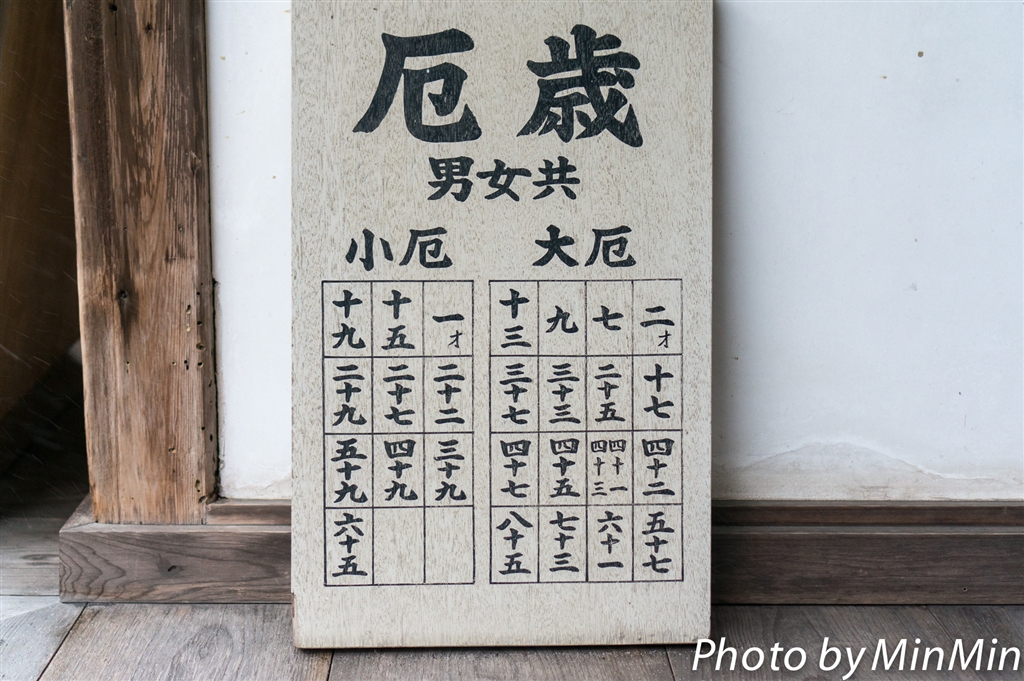 厄 歳
男女共
小厄 大厄
十九 十五 一才 十三 九 七 二才
二十九 二十七 二十二 三十七 三十三 二十五 十七
五十九 四十九 三十九 四十七 四十五 四十三 四十一 四十二
六十五 八十五 七十三 六十一 五十七
Photo by MinMin